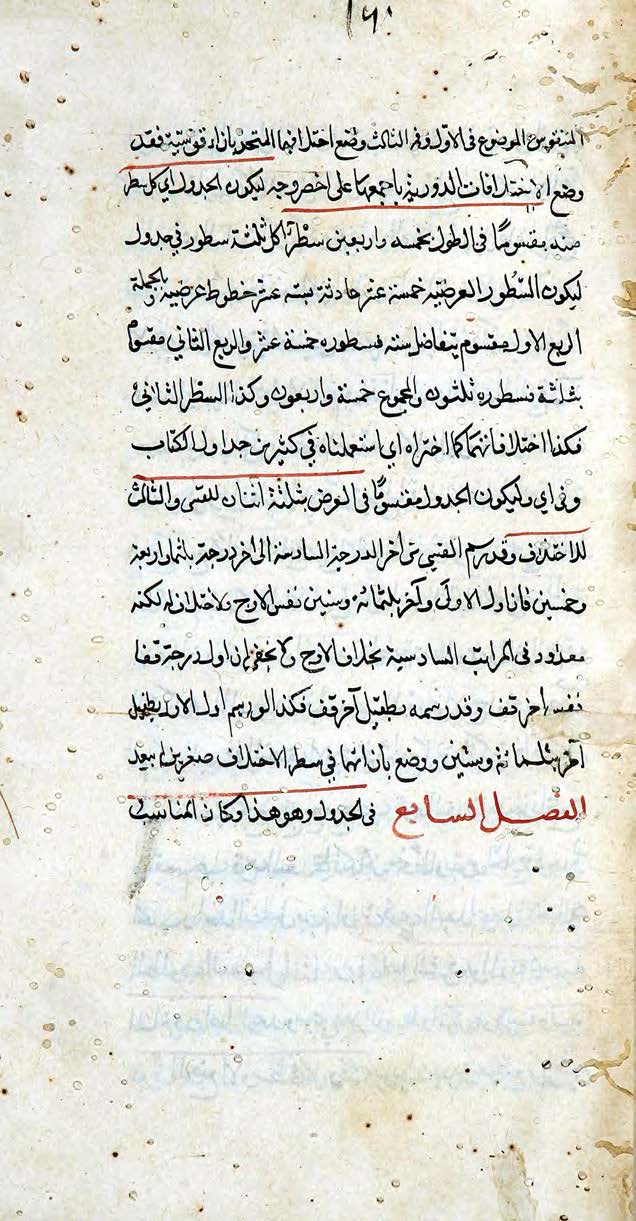 ١٦٠
القوس الموضوع في الاول وفي الثالث وضع اختلافهما المتحد بازاء قوسيه فقد
وضع الاختلافات الدورية باجمعها على اخصر وجه ليكون الجدول اي كل سطر
منه مقسوما في الطول بخمسه واربعين سطرا كل ثلثة سطور في جدول
ليكون السطور العرضيه خمسة عشر حادثة بسته عشر خطوط عرضية وبالجملة
الربع الاول مقسوم بتفاضل سته فسطوره خمسة عشر والربع الثاني مقسوم
بثلثة فسطوره ثلثون والمجموع خمسة واربعون وكذا السطر الثاني
فكذا اختلافاتهما كما اختراه اي استعملناه في كثير من جداول الكتاب
وفي اي وليكون الجدول مقسوما في العرض بثلثة اثنان للقسي والثالث
للاختلاف وقد رسم القسي من آخر الدرجة السادسة الى آخر درجة بثلثمائة واربعة
وخمسين فان اول الاولى وآخر بثلثمائة وستين نفس الاوج ولا اختلاف له لكنه
معدود في المراتب السادسية بخلاف الاوج ولا يخفى ان اول درجة قفا
نفس آخر قف وقد رسمه بطفيل آخر قف فكذا لو رسم اول الاول بطفيل
آخر بثلثمائة وستين ووضع بازائهما في سطر الاختلاف صفرين لم يبعد
الفصل السابع في الجدول وهو هذا وكان المناسب